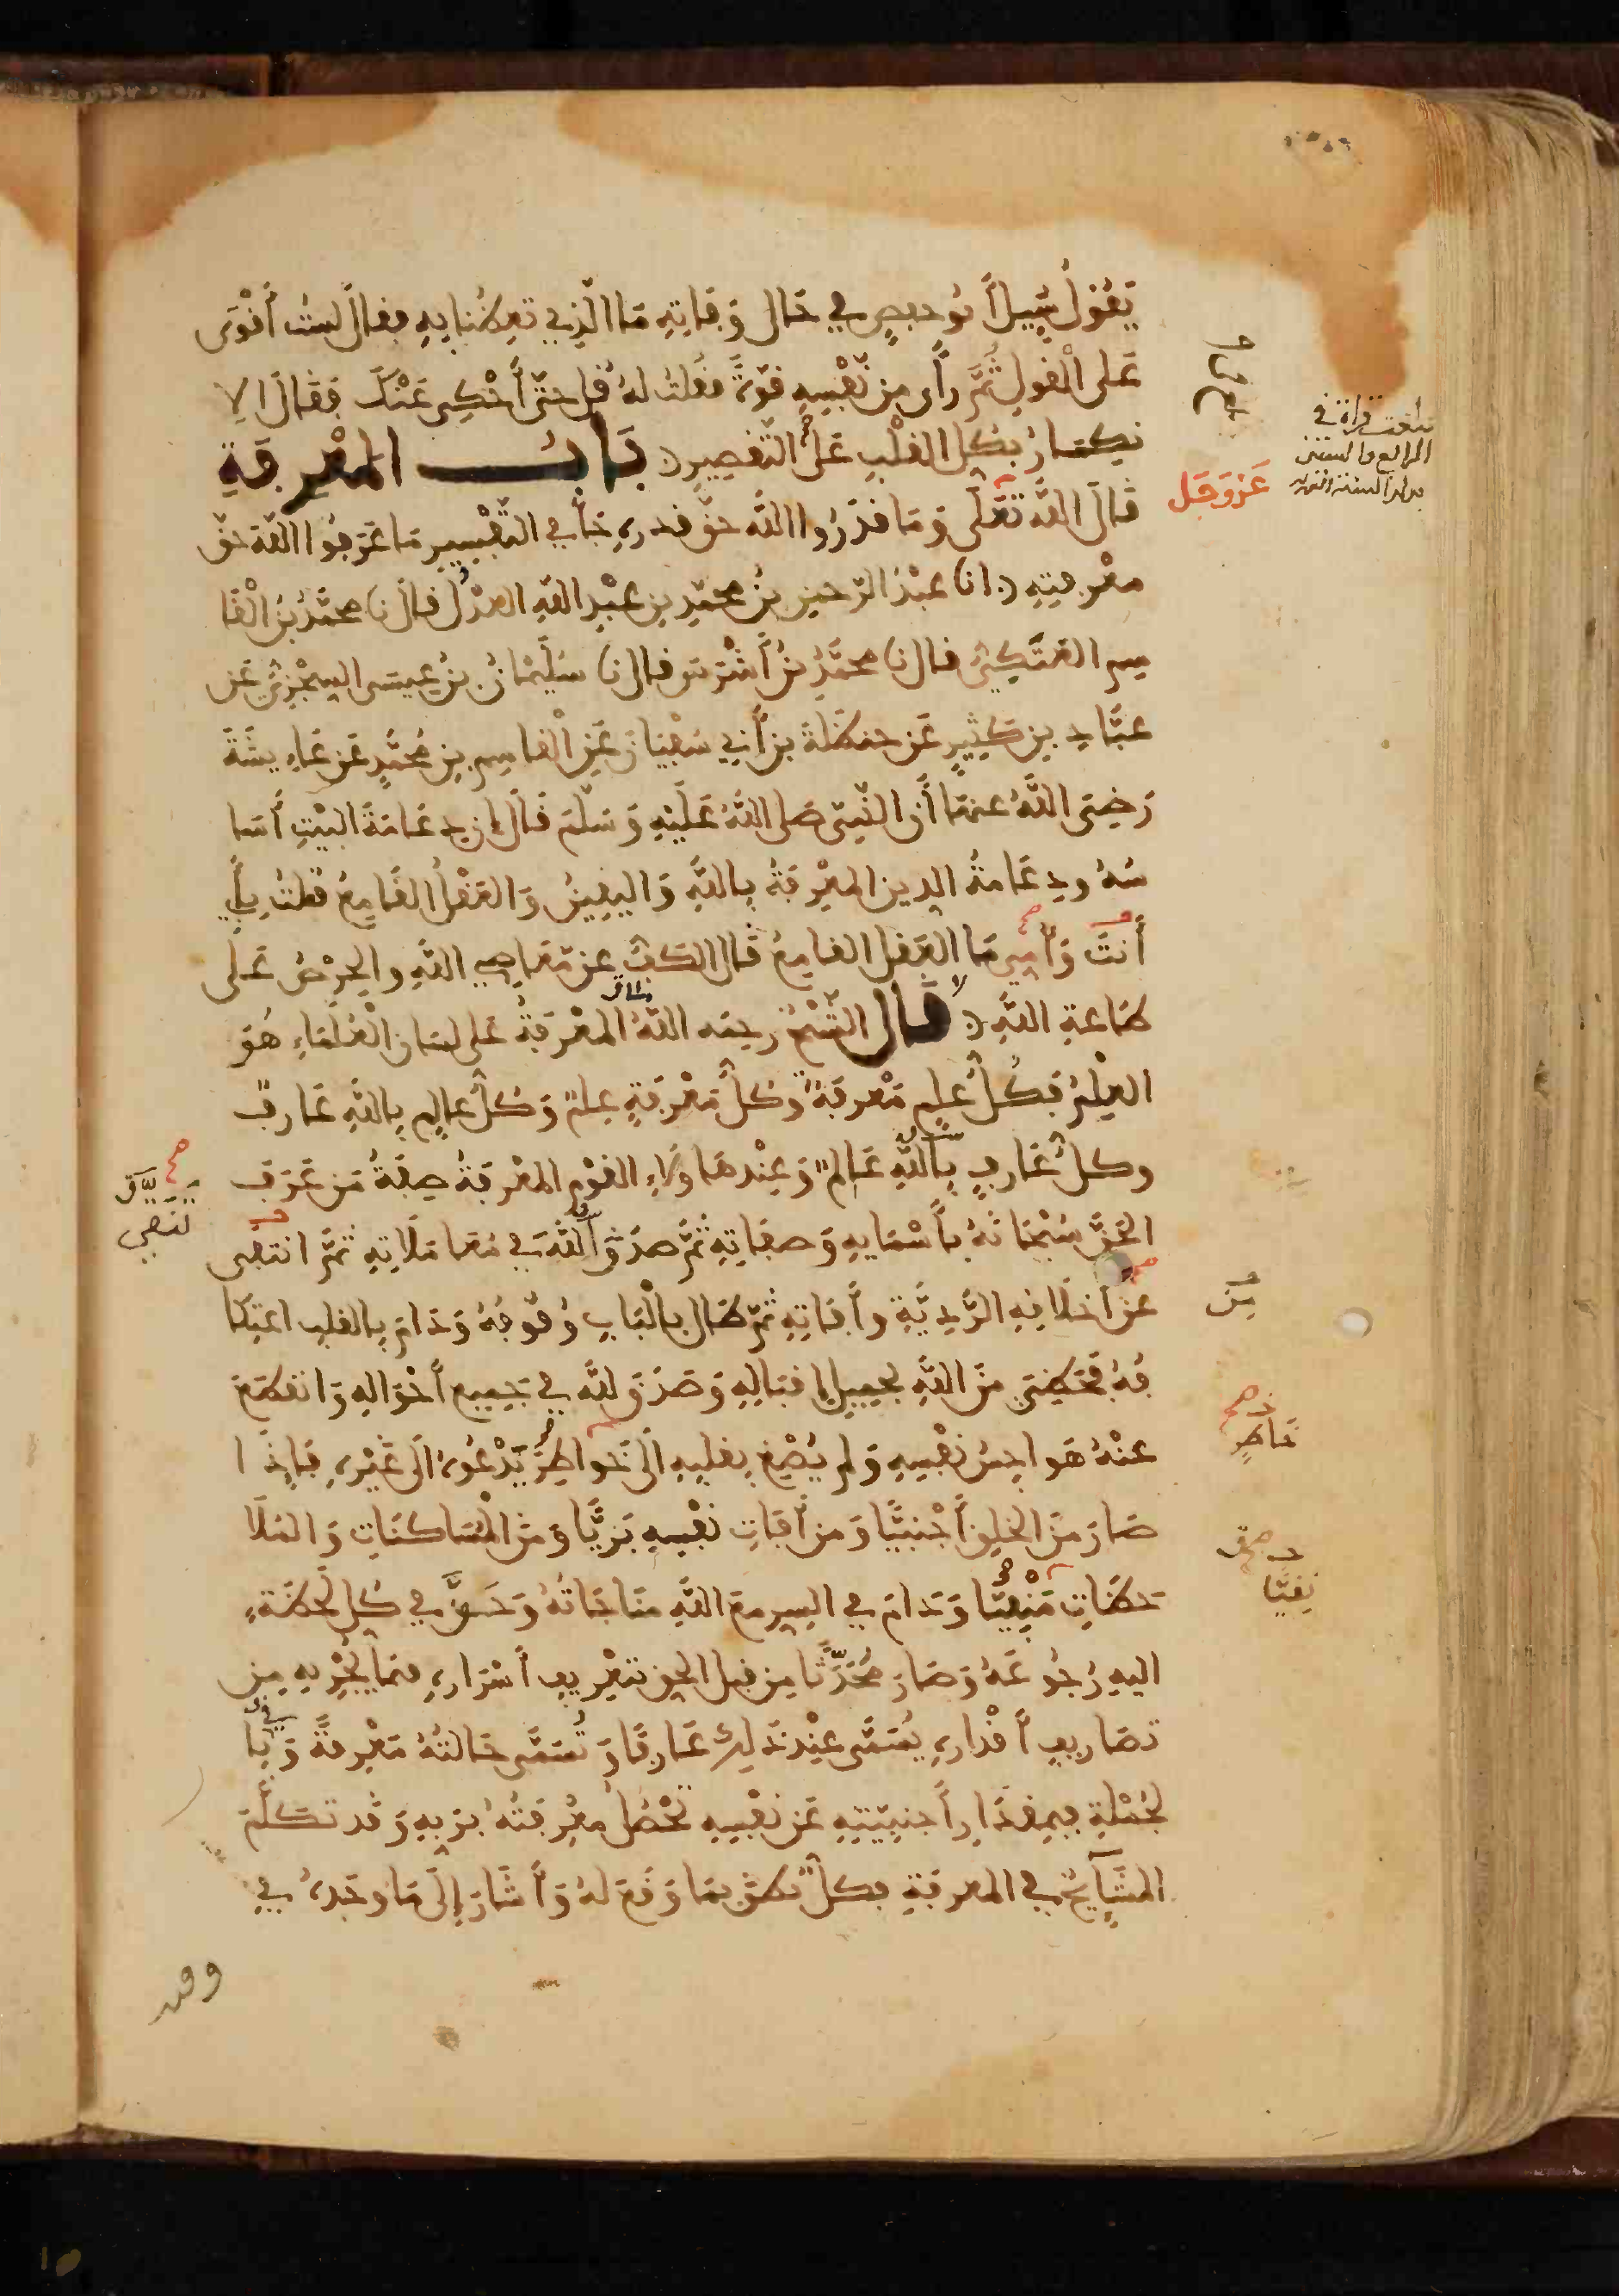 يَقُولُ سُئِيلَ أَبُو حفصٍ في حَال وَفَاتِهِ مَا الَّذِي تَعِظُنَا بِهِ فقالَ لستُ أَقْوَى
عَلى الْقولِ ثُمَّ رأَى مِن نَّفْسِهِ قوّةً فقُلتُ لهُ قل حتّى أَحْكِي عَنْكَ فَقَالَ الا
نكسارُ بكل القلْبِ عَلَى التّقصِيرِ بَابُ المَعْرِفَةِ
قَالَ اللَّهُ تعَلَى وَمَا قَدَرُوا اللَّهَ حقَّ قدره جَأَ في التَّفْسِيرِ مَا عَرَفُوا اللَّهَ حَقَّ
معْرفتِهِ انا عبْدُ الرّحمنِ بنُ محمّدِ بنِ عبْدِ اللهِ العدْلُ قال نا محمَّدُ بنُ الْقَا
سِمِ العَتَكِيُّ قال نا محمَّدُ بنُ أَشْرَسَ قال نا سُلَيْمَانُ بنُ عِيسَى السِجْزِيُّ عَن
عبَّادِ بنِ كَثِيرٍ عَن حنظَلَةَ بنِ أَبِي سُفْيَانَ عَنِ الْقاسِمِ بنِ مُحمَّدٍ عَن عَاءِيشَةَ
رَضِيَ اللَّهُ عنهَا أَن النَّبِيَّ صَلى اللَّهُ عَلَيْهِ وَسَلَّمَ قَالَ إن دِعَامَةَ البَيْتِ أَسَا
سُهُ ودِعَامةُ الدِين المعْرِفَةُ بِاللَّهِ وَاليقِينُ وَالعَقْلُ القَامِعُ قُلتُ بِأَبِي
أَنتَ وَأُمِّي مَا العَقل القامِعُ قَالَ الكَفُّ عن مّعَاصِي اللَّهِ والحِرْصُ عَلَى
طَاعةِ اللَّهِ قَال الشَّيْخُ رحمه اللَّهُ المعْرفَةُ عَلى لسَان الْعُلَمَاءِ هُوَ
العِلْمُ فكُلُّ عِلمٍ مَعْرفَةٌ وَكلُّ مَعْرِفَةٍ عِلمٌ وَكلُّ عَالِمٍ بِاللَّهِ عَارفٌ
وكلُّ عَارفٍ بِاللَّهِ عَالِمٌ وَعِنْد هَاولَاءِ القوْمِ المعْرفَةُ صِفَةُ مَن عَرَفَ
الحَقَّ سُبْحَانَهُ بأَسْمَايِهِ وَصِفَاتِهِ ثُمَّ صَدَقَ اللَّهَ في مُعَامَلَاتِهِ ثُمَّ انتفَى
عَن أَخلَاقِهِ الرَّدِيَّةِ وأَفَاتِهِ ثمّ طَال بالْبَابِ وُقُوفُهُ وَدَامَ بِالقلبِ اعتِكَا
فُهُ فَحَظِيَ مِنَ اللَّهِ بجميلِ إِقبَالِهِ وَصَدَقَ للَّهَ في جَمِيعِ أَحْوَالِهِ وَانقطَعَ
عنْهُ هَواجِسُ نفْسِهِ وَلم يُصْغِ بِقلبِهِ إلَى خَواطِرَ تَدْعُوهُ الَى غَيْرِهِ فَإِذَا
صَارَ مِنَ الخلقِ أَجْنبيًّا وَمِن أَفَاتِ نفْسِهِ بَرِيًّا وَمِنَ الْمُسَاكنَاتِ وَالمُلَا
حَظَاتِ مَنْفِيًّا وَدَامَ في السِرِّ معَ اللَّهِ منَاجَاتُهُ وَحَقَّ في كُلِّ لَحظَةٍ
اليهِ رُجُوعُهُ وَصَارَ مُحَدَّثًا مِن قِبل الحقِّ بتعْرِيفِ أَسْرَارِهِ فيمَا يُجْرِيهِ مِن
تصَارِيفِ أَقْدَارِهِ يُسَمَّى عِنْدَ ذَلِكَ عَارِفًا وَتُسَمَّى حَالتُهُ مَعْرِفةً وَبا
لجُمْلةِ فبِمِقدَارِ أَجنبِيّتِهِ عَن نفْسِهِ تَحْصُلُ معْرِفتُهُ برَبِهِ وَقد تكَلَّمَ
المشَايخُ في المعرفةِ فكلٌّ نطَقَ بمَا وَقَعَ لهُ وَأَشَارَ إِلَى مَا وجَدهُ في
عَزَّ وَجَل
بلغت قراة في
مِن
خَاطرٍ
نقيًّا
تنقى
وقته